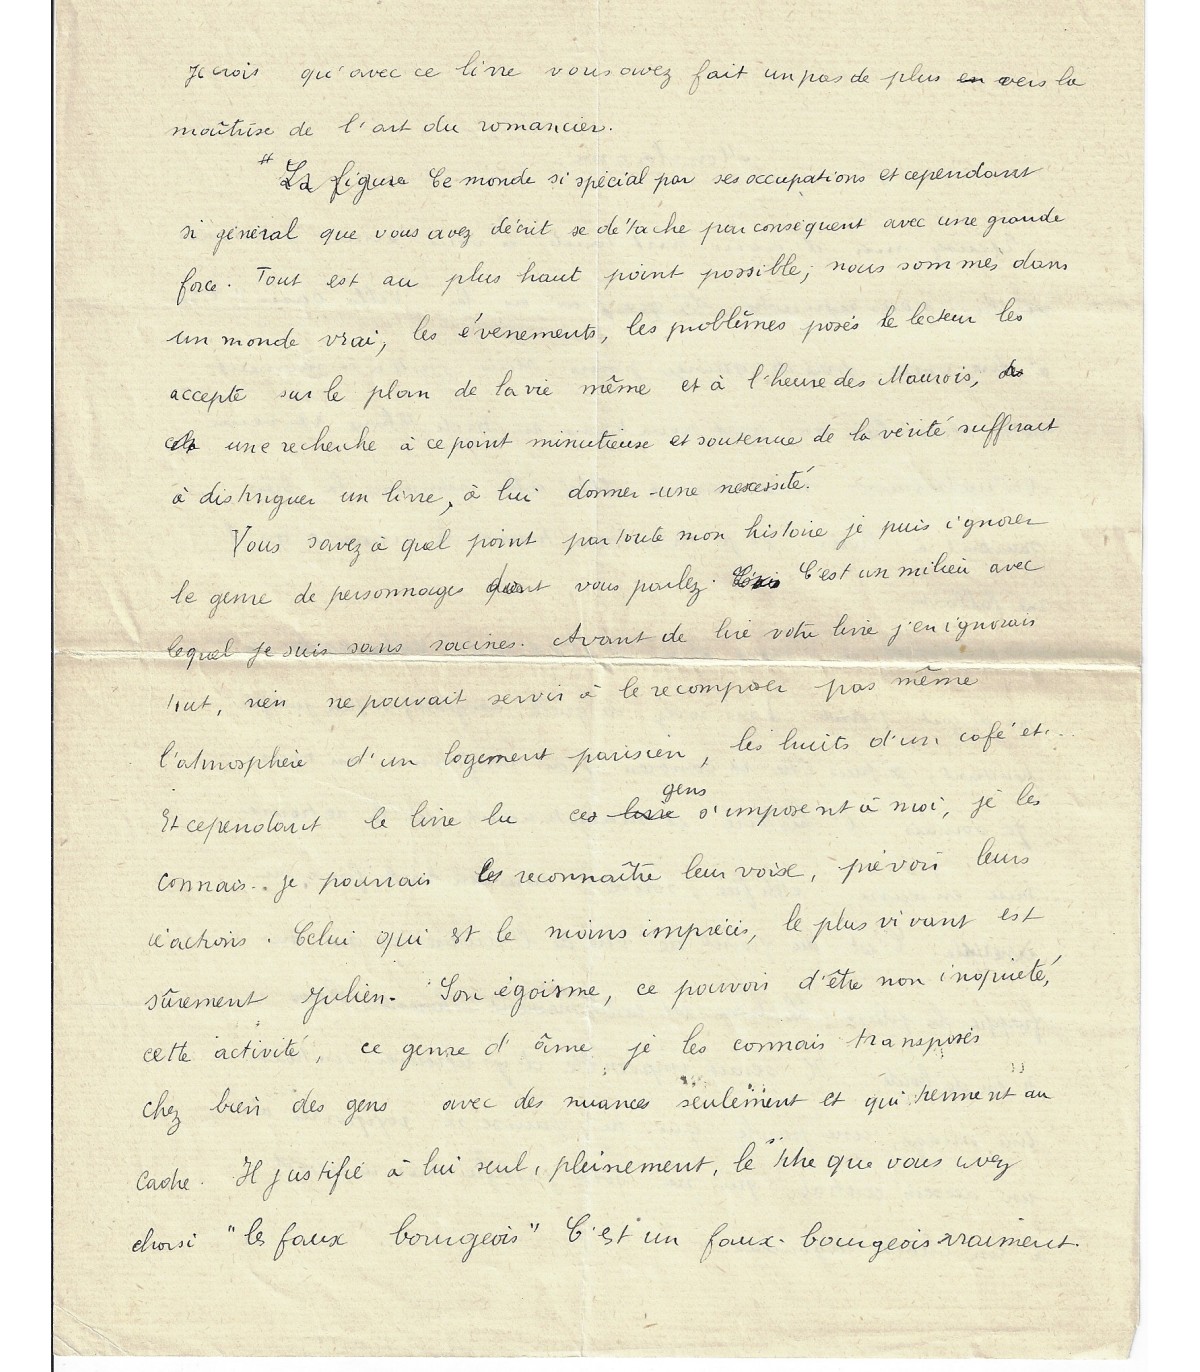 Je crois qu'avec ce livre vous avez fait un pas de plus en vers la
maîtrise de l'art du romancier.
La figure Ce monde si spécial par ses occupations et cependant
si général que vous avez décrit se détache par conséquent avec une grande
force. Tout est au plus haut point possible, nous sommes dans
un monde vrai, les évenements, les problèmes posés le lecteur les
accepte sur le plan de la vie même et à l'heure des Maurois,
cela une recherche à ce point minutieuse et soutenue de la vérité suffirait
à distinguer un livre, à lui donner une nescessité.
Vous savez à quel point par toute mon histoire je puis ignorer
le genre de personnages dont vous parlez. C'est un milieu avec
lequel je suis sans racines. Avant de lire votre livre j'en ignorais
tout, rien ne pouvait servir à le recomposer pas même
l'atmosphère d'un logement parisien, les bruits d'un café etc...
Et cependant le livre lu ces livre gens s'imposent à moi, je les
connais.. Je pourrais les reconnaître leur voix, prévoir leurs
réactions. Celui qui est le moins imprécis, le plus vivant est
sûrement Julien. Son égoïsme, ce pouvoir d'être non inquiété,
cette activité, ce genre d'âme je les connais transposés
chez bien des gens avec des nuances seulement et qui tiennent au
cadre. Il justifie à lui seul, pleinement, le titre que vous avez
choisi "les faux bourgeois" C'est un faux-bourgeois vraiment.